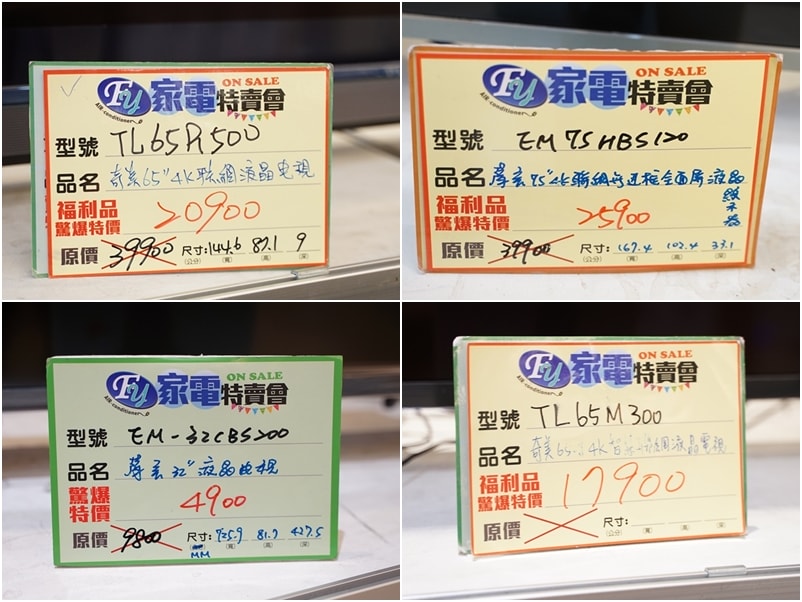 Fy 家電特賣會 ON SALE
AIR-conditioner
型號 TL65R500
品名 奇美65"4K聯網液晶电視
福利品
驚爆特價 20900
原價 39900 尺寸:144.6 87.1 9
(公分) (寬) (高) (深)
Fy 家電特賣會 ON SALE
AIR-conditioner
型號 EM75HBS120
品名 聲宝75"4K聯網无边框全面屏液晶
顯示器
福利品
驚爆特價 25900
原價 39900 尺寸: 167.4 102.4 33.1
(公分) (寬) (高) (深)
Fy 家電特賣會 ON SALE
AIR-conditioner
型號 EM-32CBS200
品名 聲宝32"液晶电視
驚爆
特價 4900
原價 9800 尺寸: 725.9 81.7 427.5
MM (寬) (高) (深)
Fy 家電特賣會 ON SALE
AIR-conditioner
型號 TL65M300
品名 奇美65 4K智慧聯網液晶電視
福利品
驚爆特價 17900
原價 尺寸:
(公分) (寬) (高) (深)